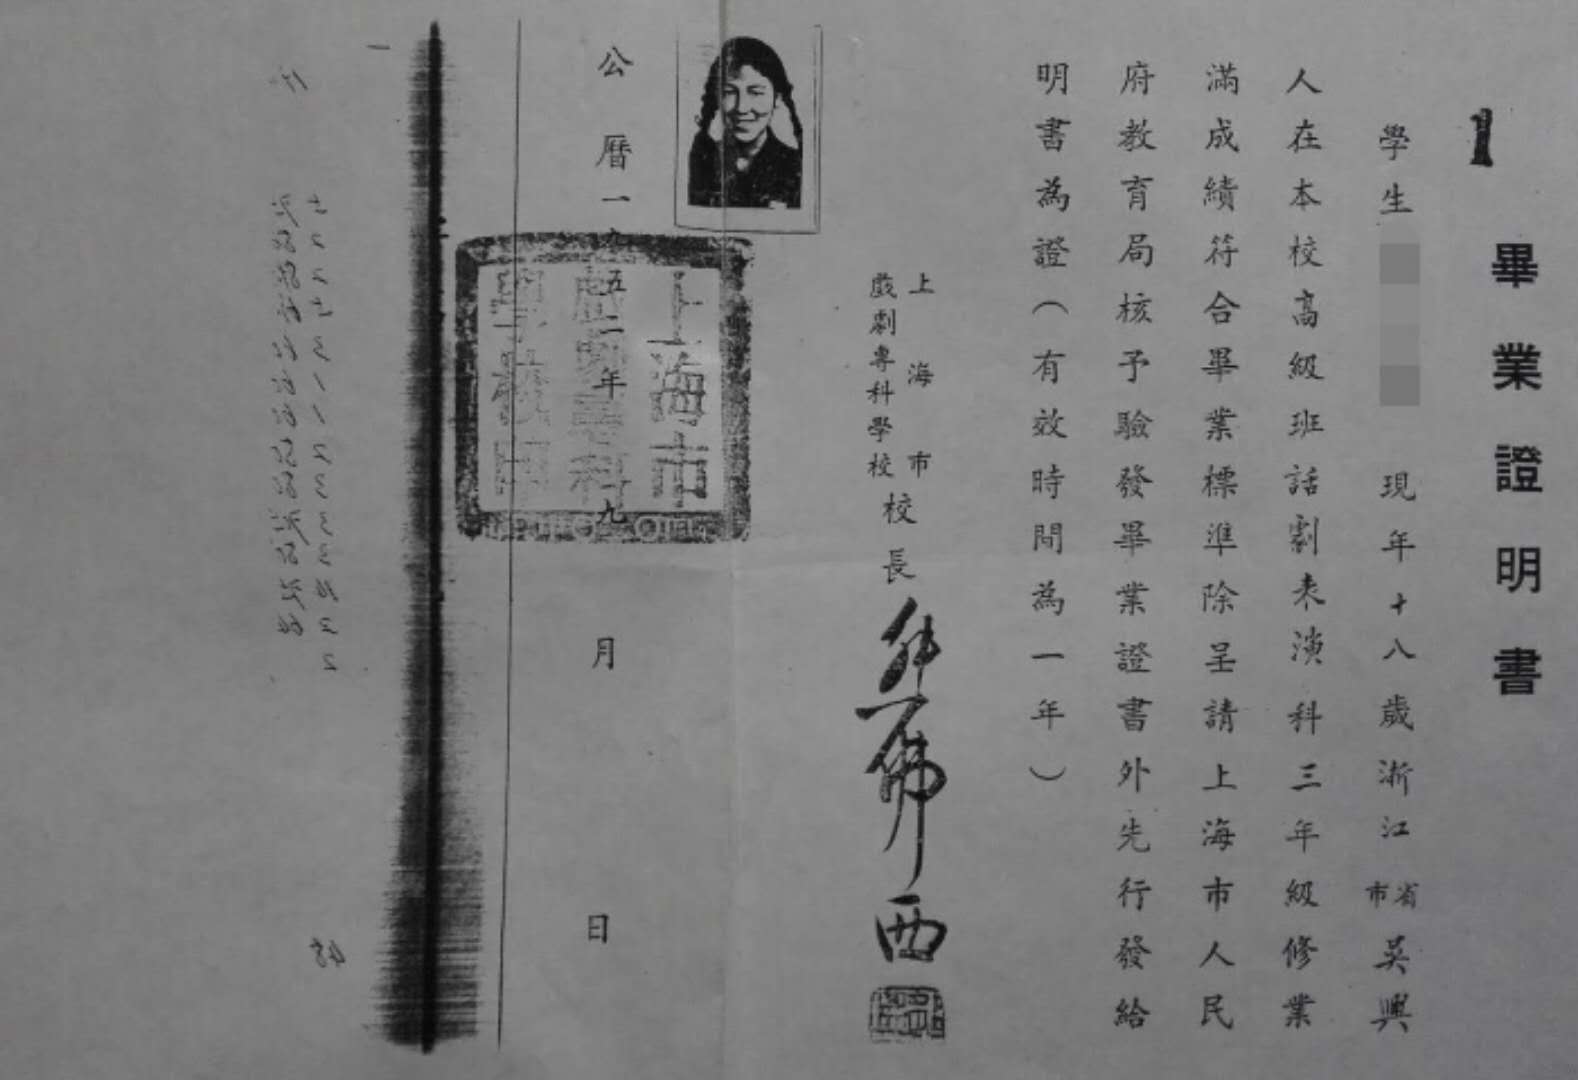 畢業證明書
學生 現年十八歲浙江省市吳興
人在本校高級班話劇表演科三年級修業
滿成績符合畢業標準除呈請上海市人民
府教育局核予驗發畢業證書外先行發給
明書為證（有效時間為一年）
上海市
戲劇專科學校
校長熊佛西
公曆一九五二年九月日
上海市
戲劇專科
學校印